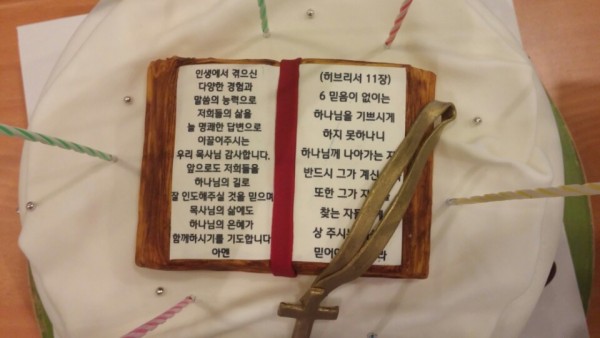 인생에서 겪으신
다양한 경험과
말씀의 능력으로
저희들의 삶을
늘 명쾌한 답변으로
이끌어주시는
우리 목사님 감사합니다.
앞으로도 저희들을
하나님의 길로
잘 인도해주실 것을 믿으며
목사님의 삶에도
하나님의 은혜가
함께하시기를 기도합니다
아멘
(히브리서 11장)
6 믿음이 없이는
하나님을 기쁘시게
하지 못하나니
하나님께 나아가는
반드시 그가 계신
또한 그가
찾는
상